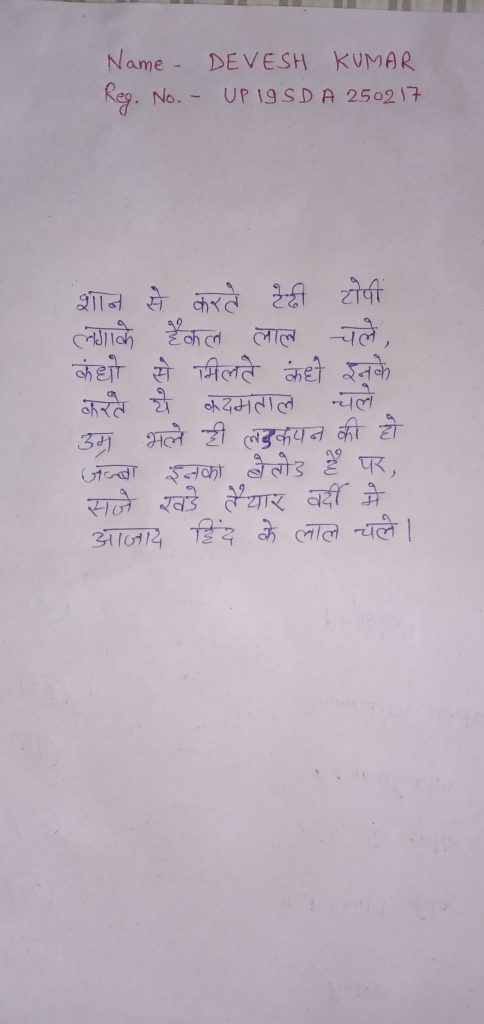 Name - DEVESH KUMAR
Reg. No. - UP19SDA250217
शान से करते टेढी टोपी
लगाके हैकल लाल चले,
कंधो से मिलते कंधे इनके
करते ये कदमताल चले
उम्र भले ही लडकपन की हो
जज्बा इनका बेतोड है पर,
सजे खडे तैयार वर्दी मे
आजाद हिंद के लाल चले।